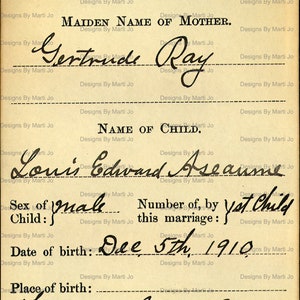 MAIDEN NAME OF MOTHER.
Gertrude Ray
NAME OF CHILD.
Louis Edward Aseaume
Sex of Child: } male Number of, by this marriage: } 1st Child
Date of birth: Dec. 5th, 1910.
Place of birth:
Designs By Marti Jo